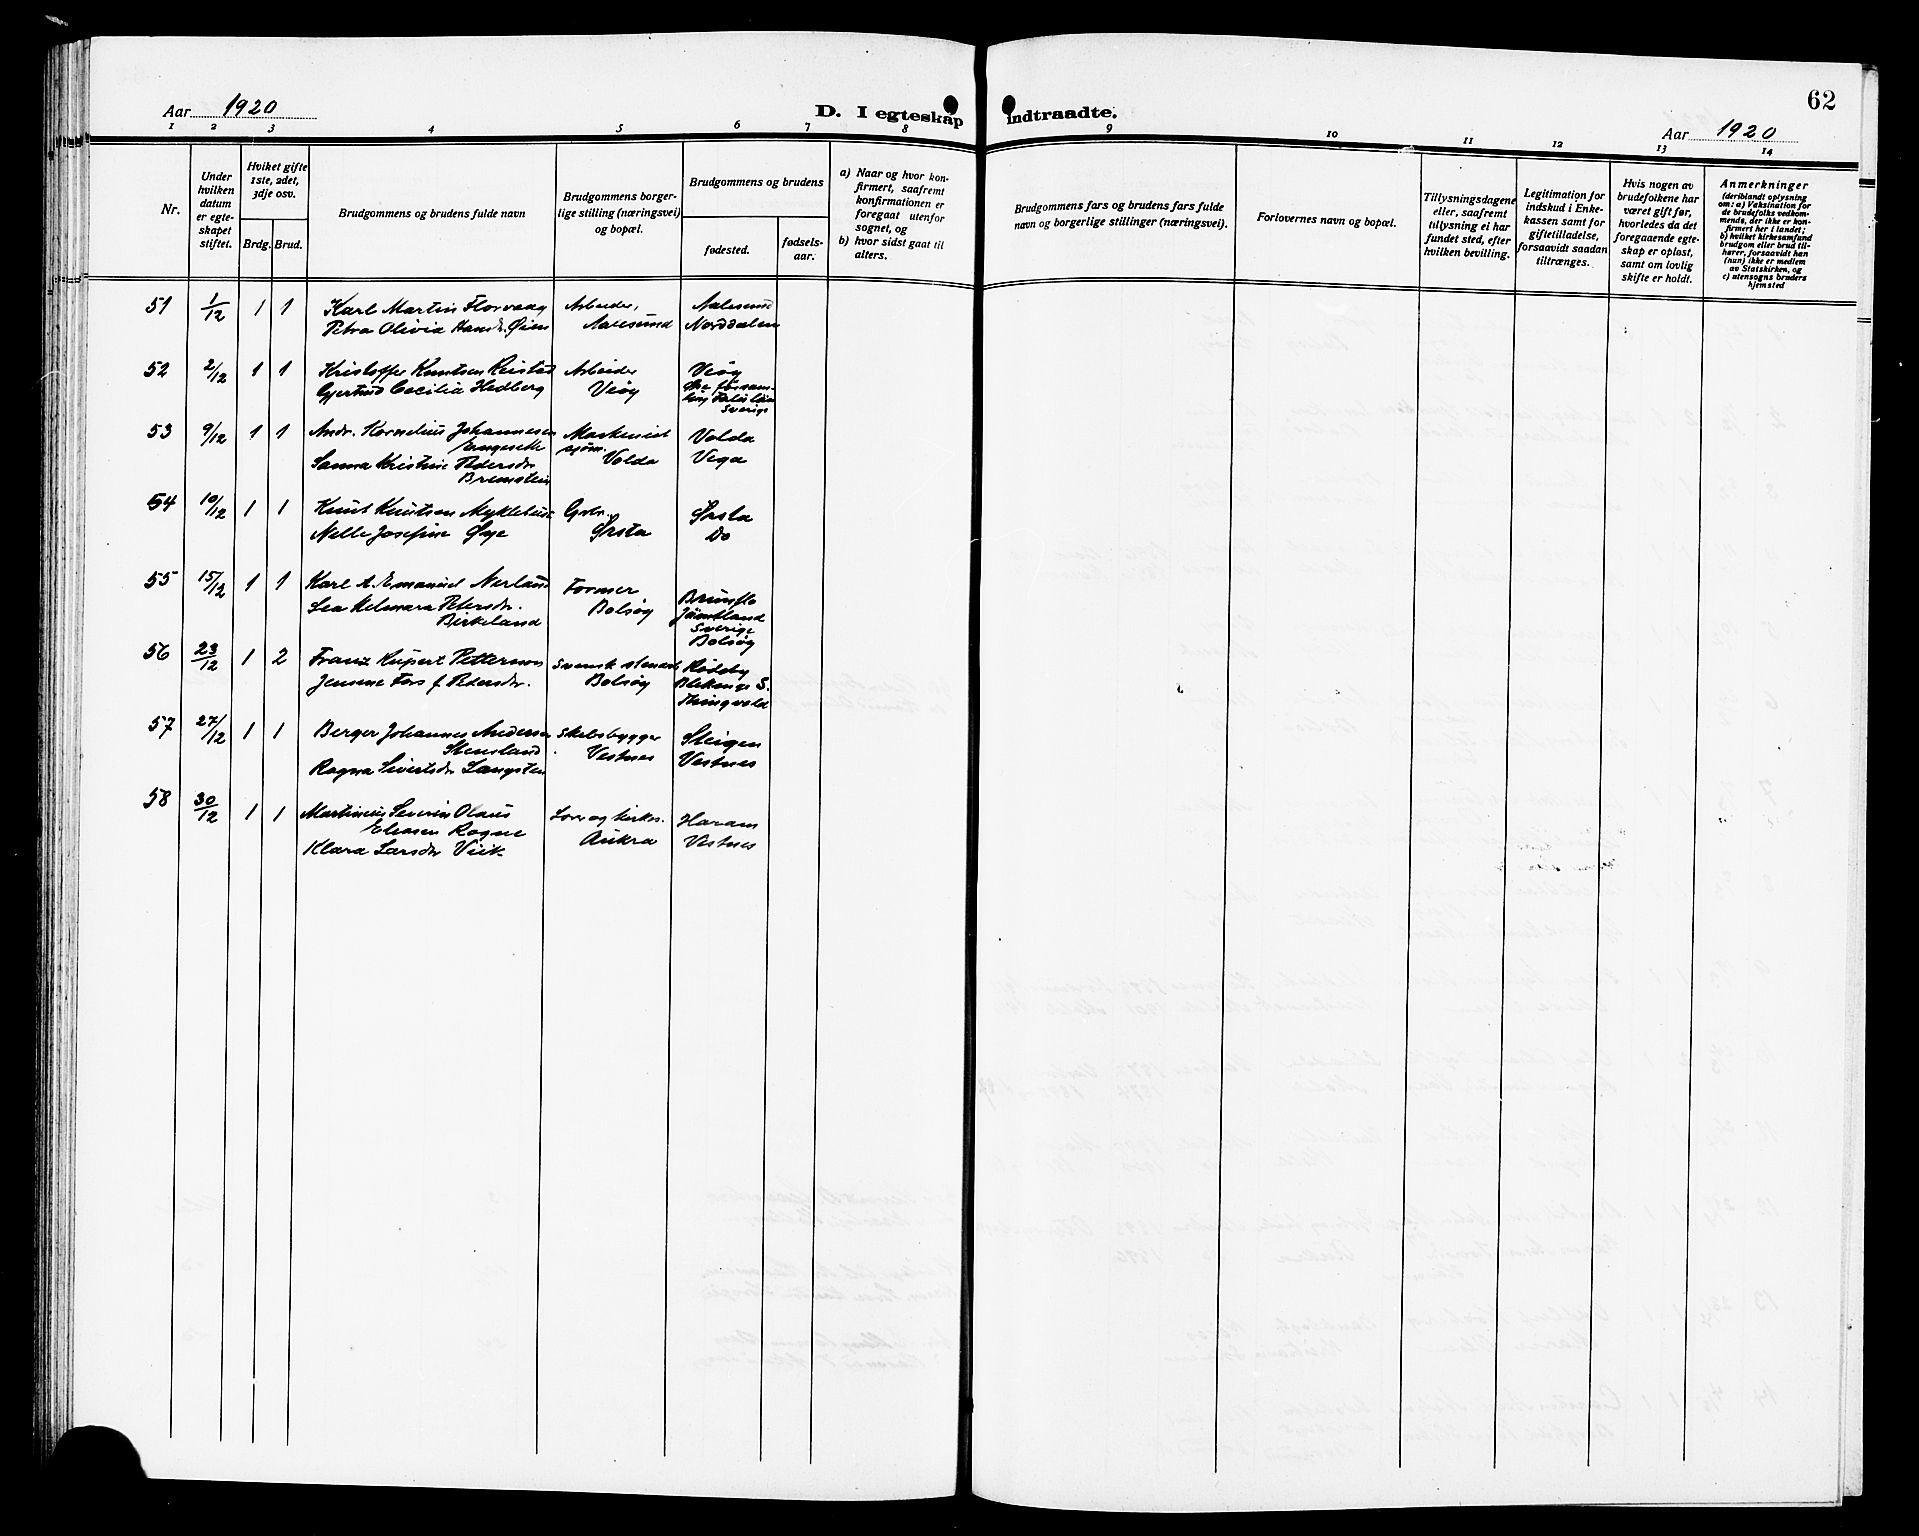 Aar 1920
D. I egteskap indtraadte.
62
Aar 1920
1 2 3 4 5 6 7 8 9 10 11 12 13 14
Nr.
Under hvilken datum er egteskapet stiftet.
Hviket gifte 1ste, 2det, 3dje osv.
Brdg. Brud.
Brudgommens og brudens fulde navn
Brudgommens borgerlige stilling (næringsvei) og bopæl.
Brudgommens og brudens
fødested.
fødselsaar.
a) Naar og hvor konfirmert, saafremt konfirmationen er foregaat utenfor sognet, og
b) hvor sidst gaat til alters.
Brudgommens fars og brudens fars fulde navn og borgerlige stillinger (næringsvei).
Forlovernes navn og bopæl.
Tillysningsdagene eller, saafremt tillysning ei har fundet sted, efter hvilken bevilling.
Legitimation for indskud i Enkekassen samt for giftetilladelse, forsaavidt saadan tiltrænges.
Hvis nogen av brudefolkene har været gift før, hvorledes da det foregaaende egteskap er opløst, samt om lovlig skifte er holdt.
Anmerkninger
(deriblandt oplysning om: a) Vaksination for de brudefolks vedkommende, der ikke er konfirmert her i landet; b) hvilket kirkesamfund brudgom eller brud tilhører, forsaavidt han (hun) ikke er medlem av Statskirken, og c) utensogns bruders hjemsted
51 1/12 1 1 Karl Martin Florvaag Arbeider, Aalesund
Petra Olivia Hansdr. Øien Aalesund Norddalen
52 2/12 1 1 Kristoffer Knutsen Reistad Arbeider Veøy
Gjertrud Cecilia Hedberg Veøy
Sverige
53 9/12 1 1 Andr. Kornelius Johannesen Maskinist Volda
Engesetth sjøm. Volda Vega
Sanna Kristine Pedersdr
Bremstein
54 10/12 1 1 Knut Knutsen Myklebust Gbr. Ørsta
Nelle Josefine Øye Ørsta Do
55 15/12 1 1 Karl A. Emanuel Nerland Former Brunflo
Lea Helmara Petersdr. Bolsøy Jämtland
Birkeland Sverige
Bolsøy
56 23/12 1 2 Franz Rupert Petterson Svensk Rödeby
Jensine Fors f. Pedersdr. Bolsøy Blekinge S.
Thingvold
57 27/12 1 1 Berger Johannes Andersen Skibsbygger Steigen
Stensland Vestnes Vestnes
Ragna Sivertsdr Langsten
58 30/12 1 1 Martinius Severin Olaus Lær og kirkes. Haram
Eliasen Rogne Aukra Vestnes
Klara Larsdr Viik